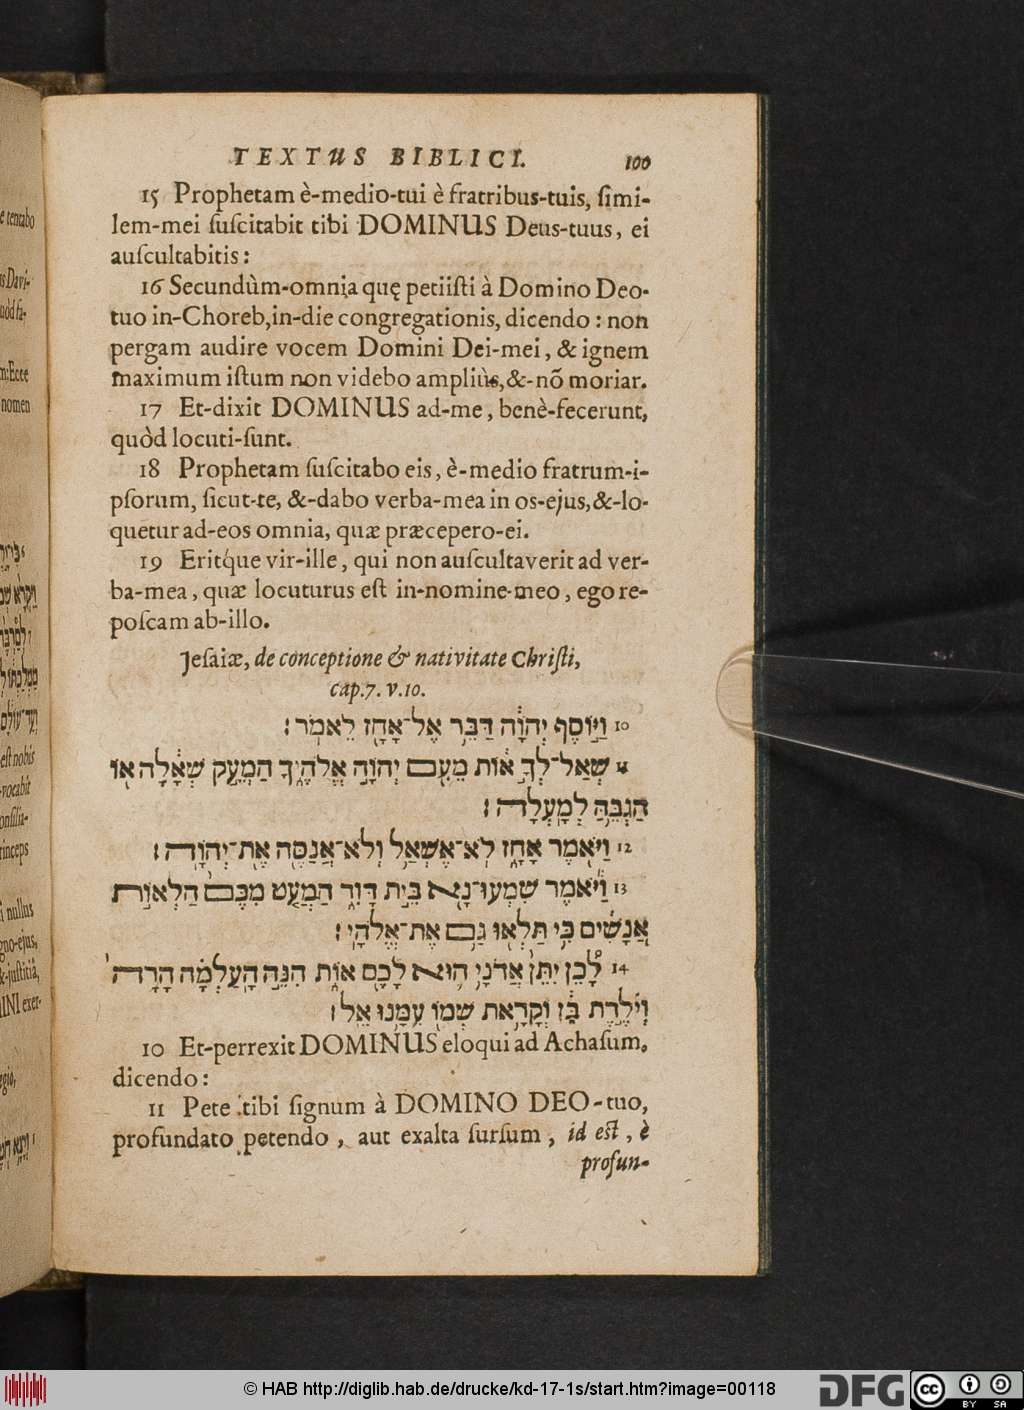 TEXTUS BIBLICI. 100
15 Prophetam è-medio-tui è fratribus-tuis, ſimi-
lem-mei ſuſcitabit tibi DOMINUS Deus-tuus, ei
auſcultabitis:
16 Secundùm-omnia quę petiiſti à Domino Deo-
tuo in-Choreb, in-die congregationis, dicendo: non
pergam audire vocem Domini Dei-mei, & ignem
maximum iſtum non videbo ampliùs, &-nõ moriar.
17 Et-dixit DOMINUS ad-me, benè-fecerunt,
quòd locuti-ſunt.
18 Prophetam ſuſcitabo eis, è-medio fratrum-i-
pſorum, ſicut-te, &-dabo verba-mea in os-ejus, &-lo-
quetur ad-eos omnia, quæ præcepero-ei.
19 Eritq́ue vir-ille, qui non auſcultaverit ad ver-
ba-mea, quæ locuturus eſt in-nomine-meo, ego re-
poſcam ab-illo.
Jeſaiæ, de conceptione & nativitate Chriſti,
cap. 7. v. 10.
10 וַיּ֣וֹסֶף יְהוָ֔ה דַּבֵּ֥ר אֶל־אָחָ֖ז לֵאמֹֽר׃
11 שְׁאַל־לְךָ֣ א֔וֹת מֵעִ֖ם יְהוָ֣ה אֱלֹהֶ֑יךָ הַעְמֵ֣ק שְׁאָ֔לָה א֖וֹ
הַגְבֵּ֥הַּ לְמָֽעְלָה׃
12 וַיֹּ֖אמֶר אָחָ֑ז לֹא־אֶשְׁאַ֥ל וְלֹא־אֲנַסֶּ֖ה אֶת־יְהוָֽה׃
13 וַיֹּ֕אמֶר שִׁמְעוּ־נָ֖א בֵּ֣ית דָּוִ֑ד הַמְעַ֤ט מִכֶּם֙ הַלְא֣וֹת
אֲנָשִׁ֔ים כִּ֥י תַלְא֖וּ גַּ֥ם אֶת־אֱלֹהָֽי׃
14 לָ֠כֵן יִתֵּ֨ן אֲדֹנָ֥י ה֛וּא לָכֶ֖ם א֑וֹת הִנֵּ֣ה הָֽעַלְמָ֗ה הָרָה֙
וְיֹלֶ֣דֶת בֵּ֔ן וְקָרָ֥את שְׁמ֖וֹ עִמָּ֥נוּ אֵֽל׃
10 Et-perrexit DOMINUS eloqui ad Achaſum,
dicendo:
11 Pete tibi ſignum à DOMINO DEO-tuo,
profundato petendo, aut exalta ſurſum, id eſt, è
profun-
© HAB http://diglib.hab.de/drucke/kd-17-1s/start.htm?image=00118
DFG
cc
BY SA